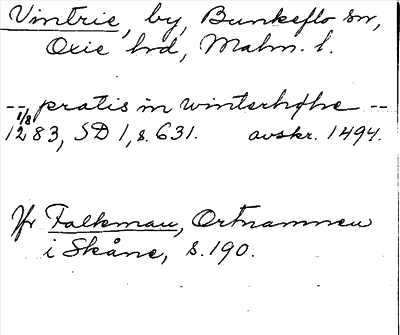 Vintrie, by, Bunkeflo sn,
Oxie hd, Malm. l.
-- pratis in winterhøhe --
1/8
1283, SD 1, s. 631. avskr. 1494.
Jfr Falkman, Ortnamnen
i Skåne, s. 190.